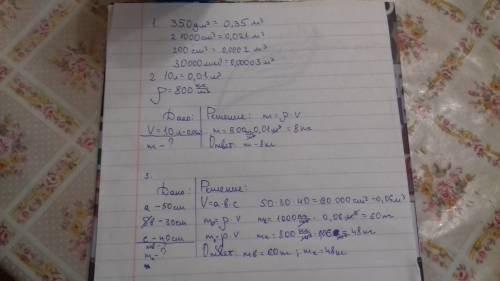 1. 350дм³ = 0,35 м³
21000см³ = 0,021 м³
200 см³ = 0,0002 м³
30000мм³ = 0,00003 м³
2. 10л = 0,01 м³
ρ = 800 кг/м³
Дано: Решение: m = ρ · V
V = 10 л m = 800 · 0,01 м³ = 8 кг
m - ? Ответ: m - 8 кг
3.
Дано: Решение:
a - 50см V = a·b·c 50·30·40 = 60 000 см³ - 0,06 м³
в - 30см = ρ · V = 1000 кг/м³ · 0,06 м³ = 60
c - 40см = ρ · V = 800 кг/м³ · = 48 кг
- ? Ответ: mв = 60 ; = 48 кг